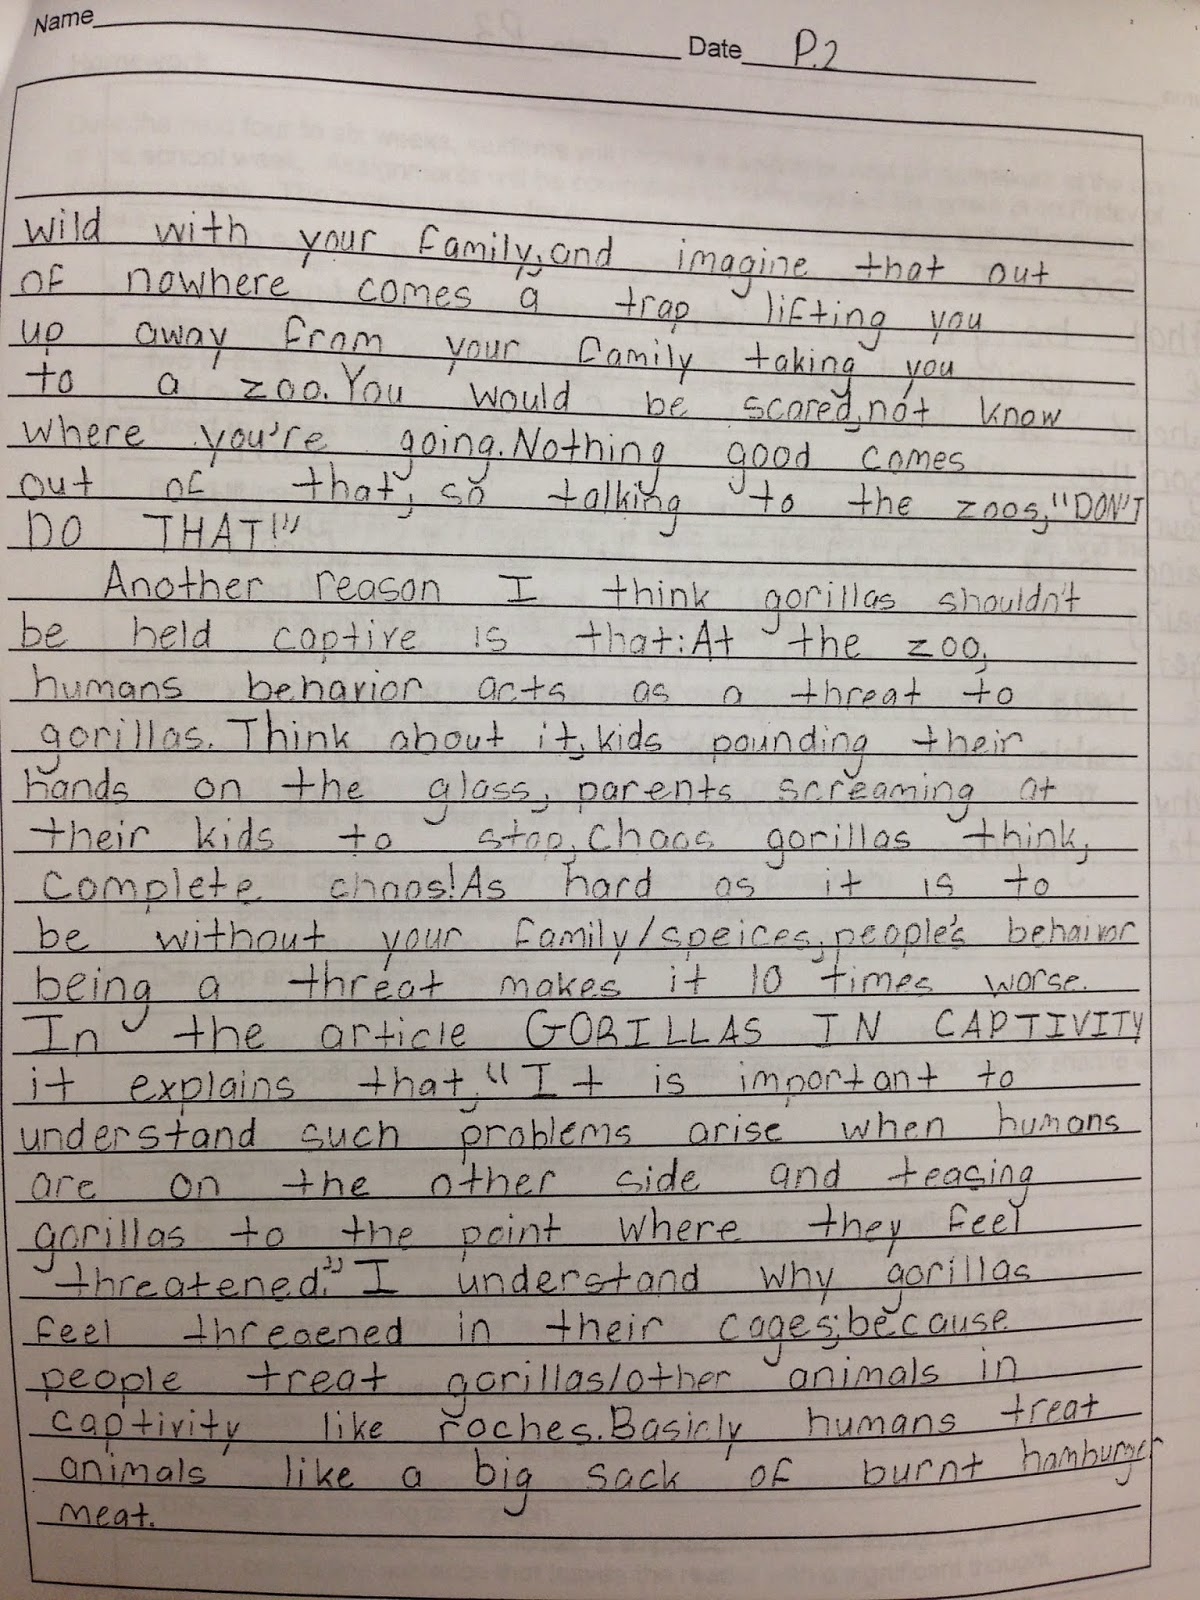 Name Date P.2
wild with your family, and imagine that out
of nowhere comes a trap lifting you
up away from your family taking you
to a zoo. You would be scared, not know
where you're going. Nothing good comes
out of that, so talking to the zoos, "DON'T
DO THAT!"
Another reason I think gorillas shouldn't
be held captive is that: At the zoo,
humans behavior acts as a threat to
gorillas. Think about it, kids pounding their
hands on the glass, parents screaming at
their kids to stop. Chaos gorillas think,
complete chaos! As hard as it is to
be without your family/speices, people's behaivor
being a threat makes it 10 times worse.
In the article GORILLAS IN CAPTIVITY
it explains that, "It is important to
understand such problems arise when humans
are on the other side and teasing
gorillas to the point where they feel
threatened." I understand why gorillas
feel threaened in their cages; because
people treat gorillas/other animals in
captivity like roches. Basicly humans treat
animals like a big sack of burnt hamburger
meat.